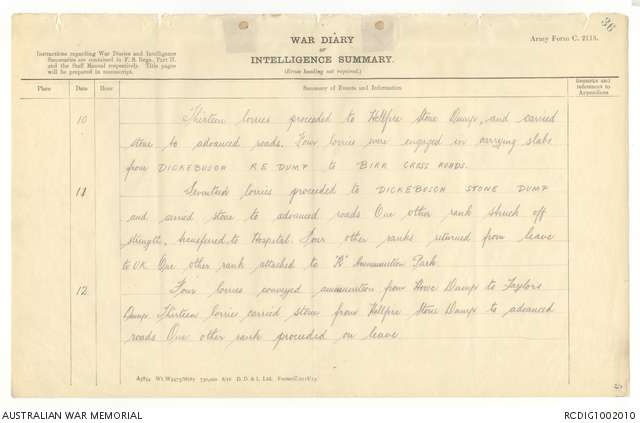 36
WAR DIARY
or
INTELLIGENCE SUMMARY.
(Erase heading not required.)
Army Form C. 2118.
Instructions regarding War Diaries and Intelligence
Summaries are contained in F. S. Regs., Part II.
and the Staff Manual respectively. Title pages
will be prepared in manuscript.
Place Date Hour Summary of Events and Information Remarks and
references to
Appendices
10 Thirteen lorries proceeded to Hellfire Stone Dump, and carried
stone to advanced roads. Four lorries were engaged in carrying slabs
from DICKEBUSCH R E DUMP to BIRR CROSS ROADS.
11 Seventeen lorries proceeded to DICKEBUSCH STONE DUMP
and carried stone to advanced roads One other rank struck off
strength, transferred to Hospital. Four other ranks returned from leave
to UK One other rank attached to "R" Ammunition Park.
12 Four lorries conveyed ammunition from Dump to Taylors
Dump. Thirteen lorries carried stone from Hellfire Stone Dump to advanced
roads One other rank proceeded on leave
D. D. & L. Ltd.
AUSTRALIAN WAR MEMORIAL
RCDIG1002010